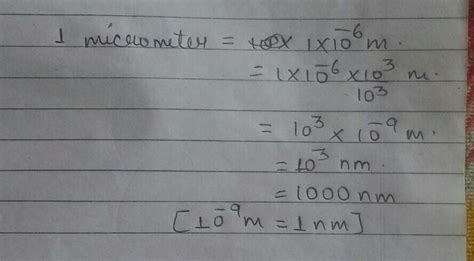 1 micrometer = 1×10⁻⁶ m.
= 1×10⁻⁶ × 10³/10³ m.
= 10³ × 10⁻⁹ m.
= 10³ nm.
= 1000 nm
[10⁻⁹m = 1nm]